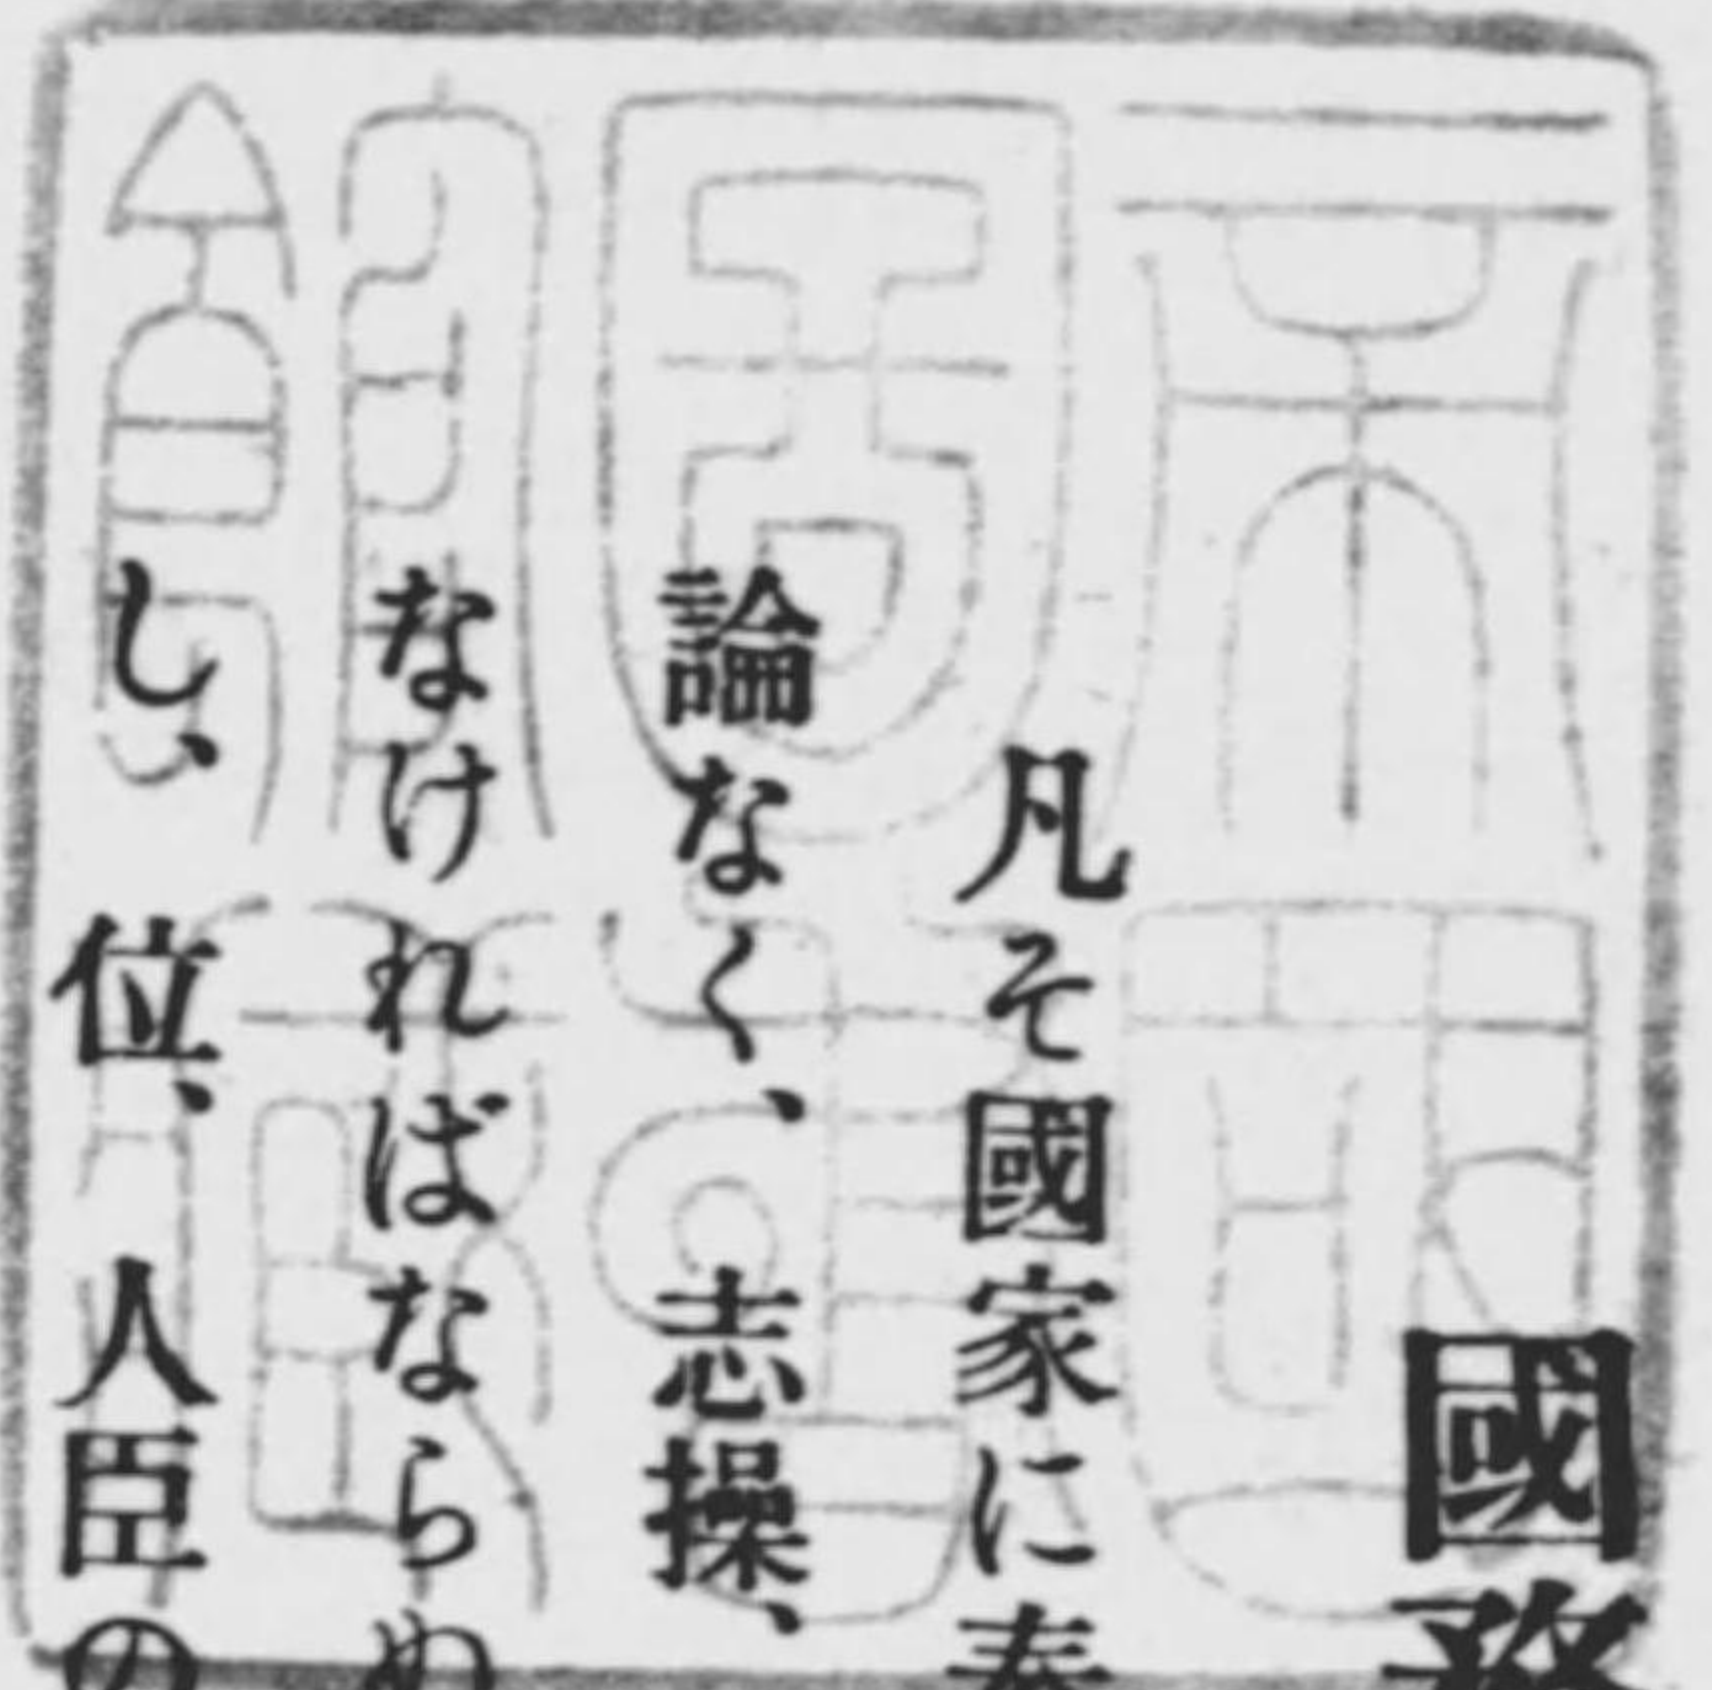 帝國
圖書
館藏
國務
凡そ國家に奉
論なく、志操、
なければならぬ
し、位、人臣の